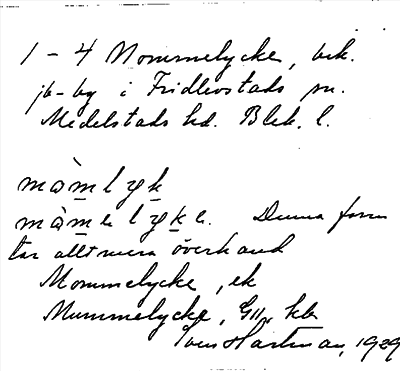 1-4 Mommelycke, bik.
jb-by i Fridlevstads sn.
Medelstads hd. Blek. l.
mòmlyk
mòmelyke. Denna form
tar allt mera överhand
Mommelycke, ek
Mummelycke, GU, kb
Sven Hartman, 1929